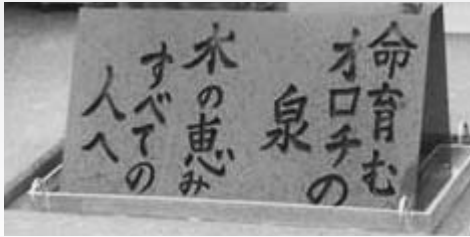 命育む
オロチの
泉
水の恵み
すべての
人へ